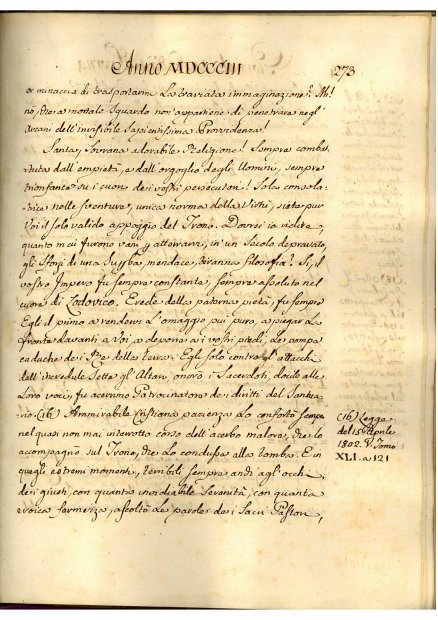 Anno MDCCCIII
273
mi minaccia di trasportarmi la traviata immaginazione? Ah!
no, che a mortale sguardo non appartiene di penetrare negl'
arcani dell'invisibile sapientissima Provvidenza!
Santa, sovrana adorabile Religione! Sempre combat-
tuta dall'empietà, e dall'orgoglio degli Uomini, sempre
trionfante su i cuori dei vostri persecutori! Sola consola-
trice nelle sventure, unica norma della Virtù, siete pur
Voi il solo valido appoggio del Trono. Dovrei io ridire,
quanto mai furono vani gli in un Secolo depravato,
gli sforzi di una mendace, tiranna filosofia? Sì, il
vostro Impero fu sempre constante, sempre assoluto nel
cuore di Lodovico. Erede della paterna pietà, fu sempre
Egli il primo a rendervi l'omaggio più puro, a piegar la
fronte davanti a Voi, a deporre a i vostri piedi, le pompe
caduche dei Re della terra. Egli solo contro gli attacchi
dell'incredule Sette gli Altari, onorò i Sacerdoti, docile alle
Loro voci, fu acerrimo Patrocinatore dei diritti del Santua-
rio (16) Ammirabile Cristiana pazienza Lo confortò sempre
nel quasi non mai interrotto corso dell'acerbo malore, che lo
accompagnò sul Trono, che Lo condusse alla tomba. E in
quegli estremi momenti, terribili sempre anche agl'occhi
dei giusti, con quanta invidiabile serenità, con quanta
eroica fermezza, ascoltò Le parole de i Sacri Pastori,
(16) Legge
del 15 Aprile
1802. V. Tomo
XLI. a 121